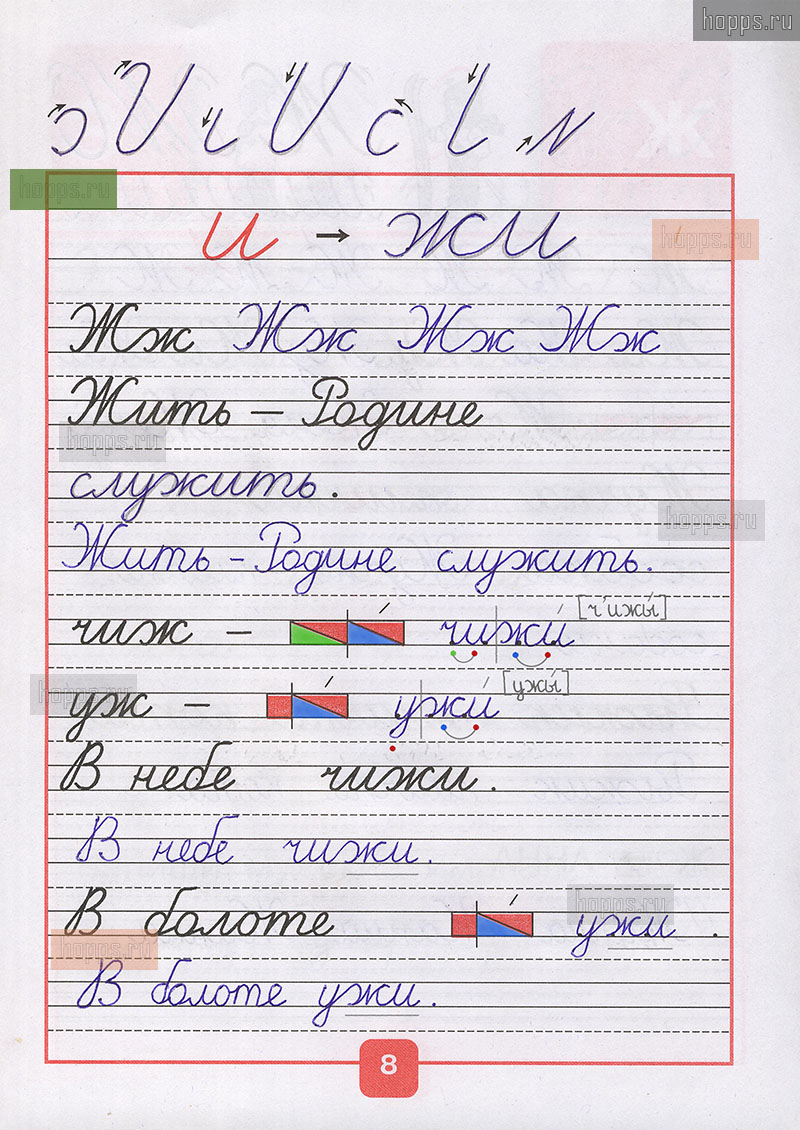 hopps.ru
Ж
hopps.ru
и → жи
hopps.ru
Жж Жж Жж Жж
Жить – Родине
hopps.ru
служить.
hopps.ru
Жить – Родине служить.
чиж – чижи́ [ч'ижы́]
hopps.ru
уж – ужи́ [ужы́]
В небе чижи.
В небе чижи.
hopps.ru
В болоте ужи .
hopps.ru
В болоте ужи.
8